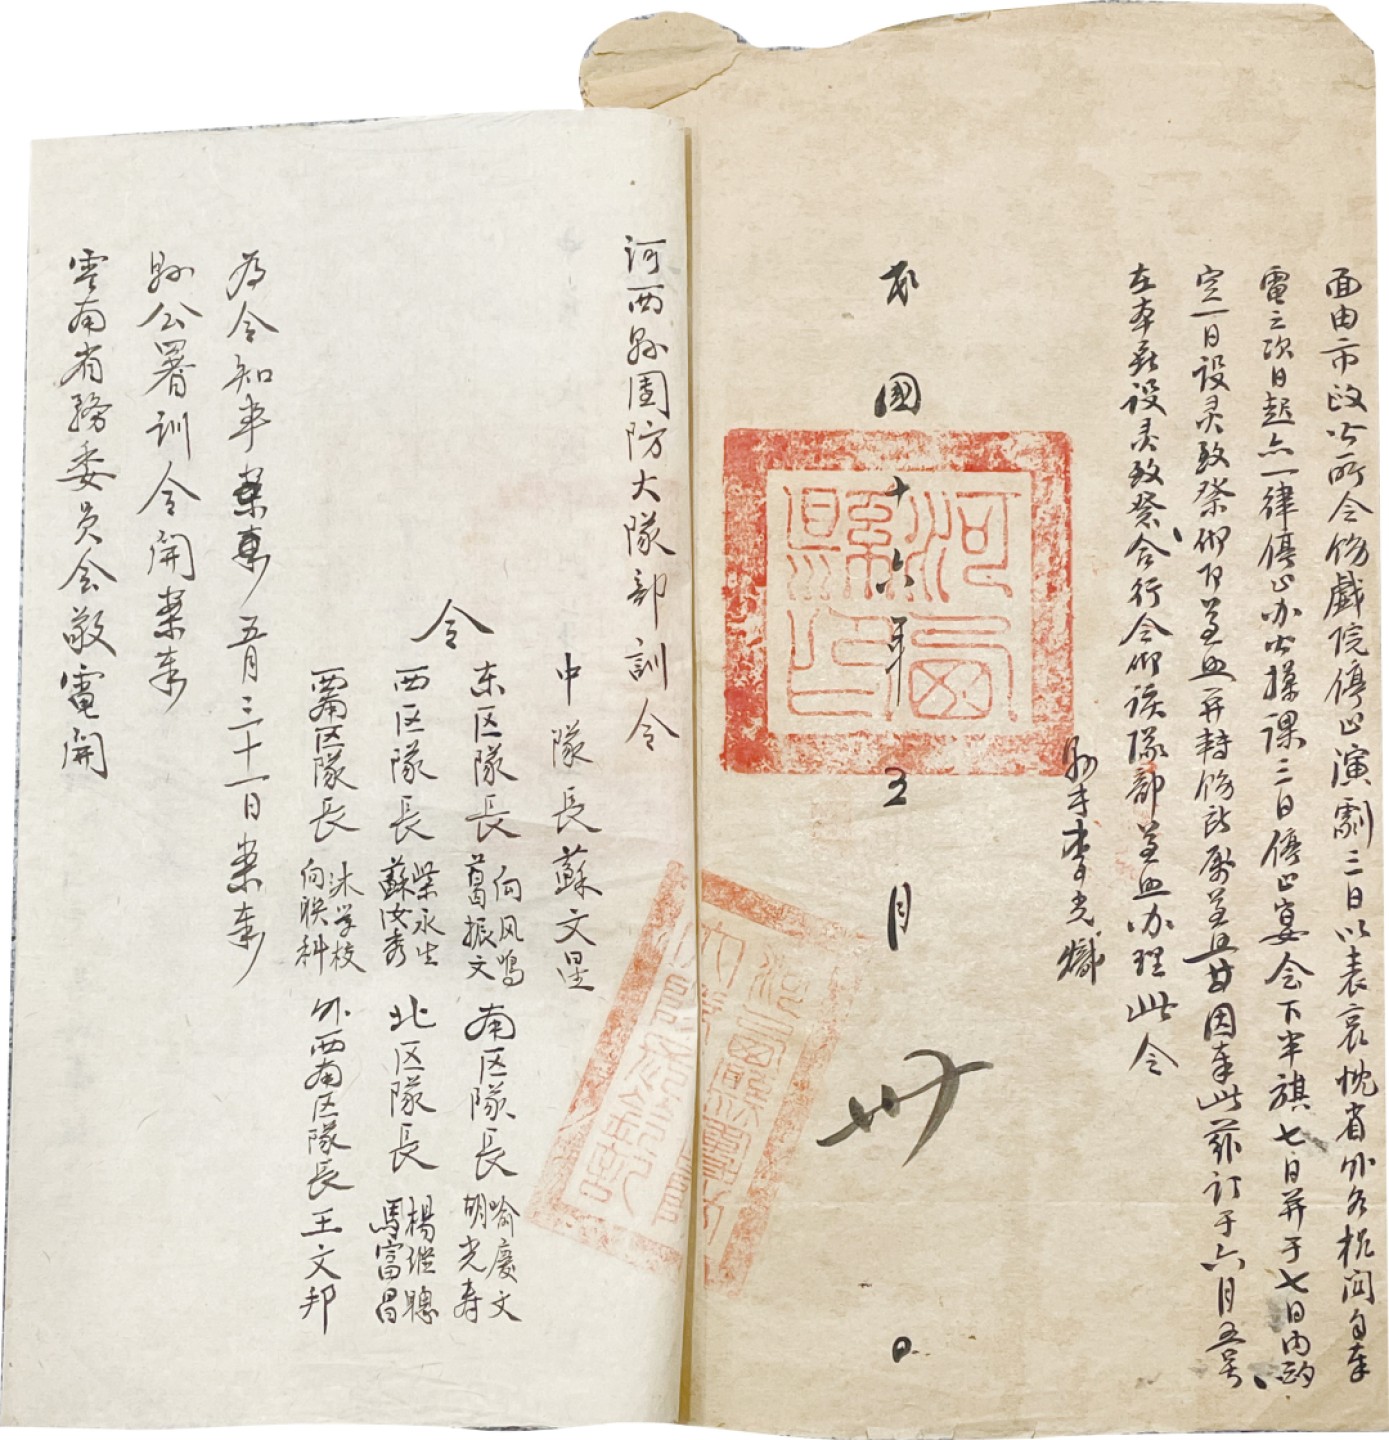 面由市政公所令飭戲院停止演劇三日以表哀忱省外各機関自奉
電之次日起亦一律停止办公操課三日停止宴会下半旗七日并于七日内酌
定一日设灵致祭仰即遵照并转飭所属遵照等因奉此兹订于六月五号
在本署设灵致祭合行令仰该隊部遵照办理此令
縣長李光
民國十六年五月卅日
河西縣印
河西縣團防大隊部訓令
中隊長蘇文星
令
东区隊長向风鸣葛振文南区隊長喻慶文胡光寿
西区隊長柴永生蘇汝秀北区隊長楊继聰馬富昌
西南区隊長沐学校向联科外西南区隊長王文邦
为令知事案奉五月三十一日案奉
縣公署訓令開案奉
雲南省務委员会敬電開